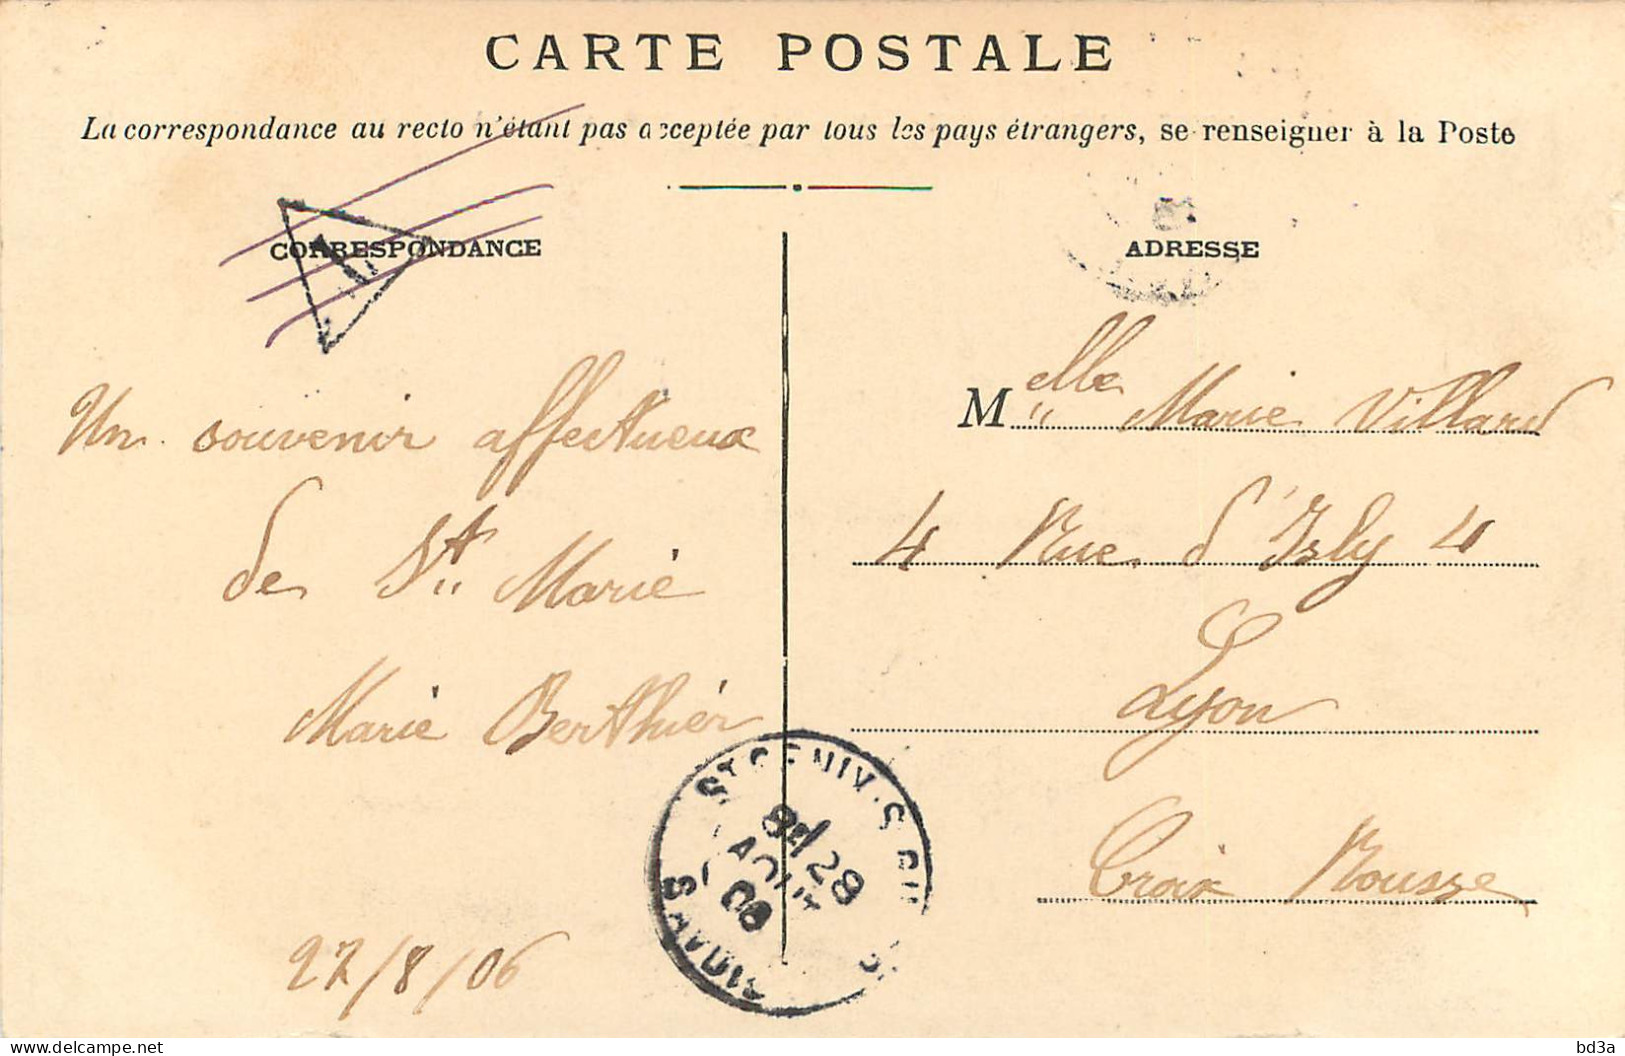 CARTE POSTALE
La correspondance au recto n'étant pas acceptée par tous les pays étrangers, se renseigner à la Poste
CORRESPONDANCE
T
Un souvenir affectueux
de St. Marie
Marie Berthier
27/8/06
ADRESSE
Melle Marie Villard
4 Rue d'Isly 4
Lyon
Croix Rousse
ST GENIX-S-GUI
28
AOUT
06
SAVOIE
delcampe.net
bd3a